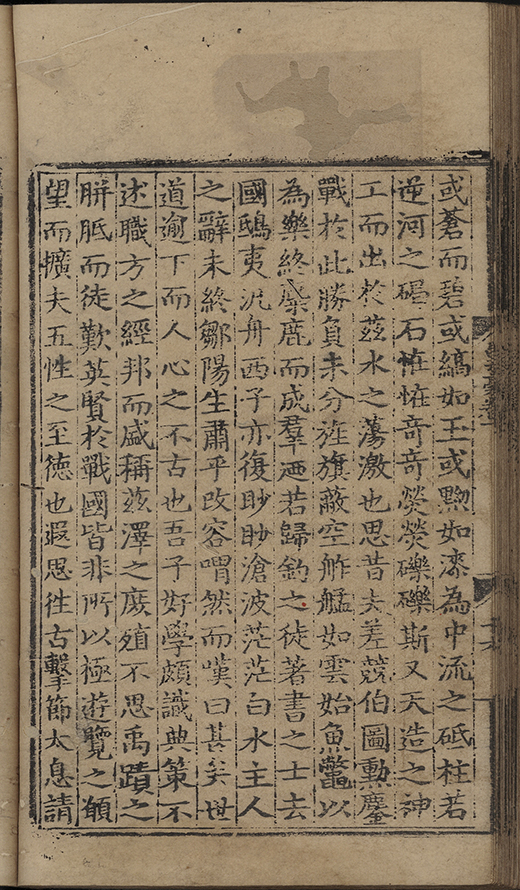 或蒼而碧或縞如玉或黝如漆為中流之砥柱若
逆河之碣石恠恠竒竒熒熒礫礫斯又天造之神
工而出於茲水之蕩激也思昔夫差競伯圖勲鏖
戰於此勝負未分旌旗蔽空舴艋如雲始魚鼈以
為樂終麋鹿而成羣廼若歸釣之徒著書之士去
國鴟夷汎舟西子亦復眇眇滄波茫茫白水主人
之辭未終鄒陽生肅乎改容喟然而嘆曰甚矣世
道逾下而人心之不古也吾子好學頗識典策不
述職方之經邦而咸稱茲澤之廣殖不思禹蹟之
胼胝而徒歎英賢於戰國皆非所以極遊覽之
望而擴夫五性之至徳也遐思徃古擊節太息請